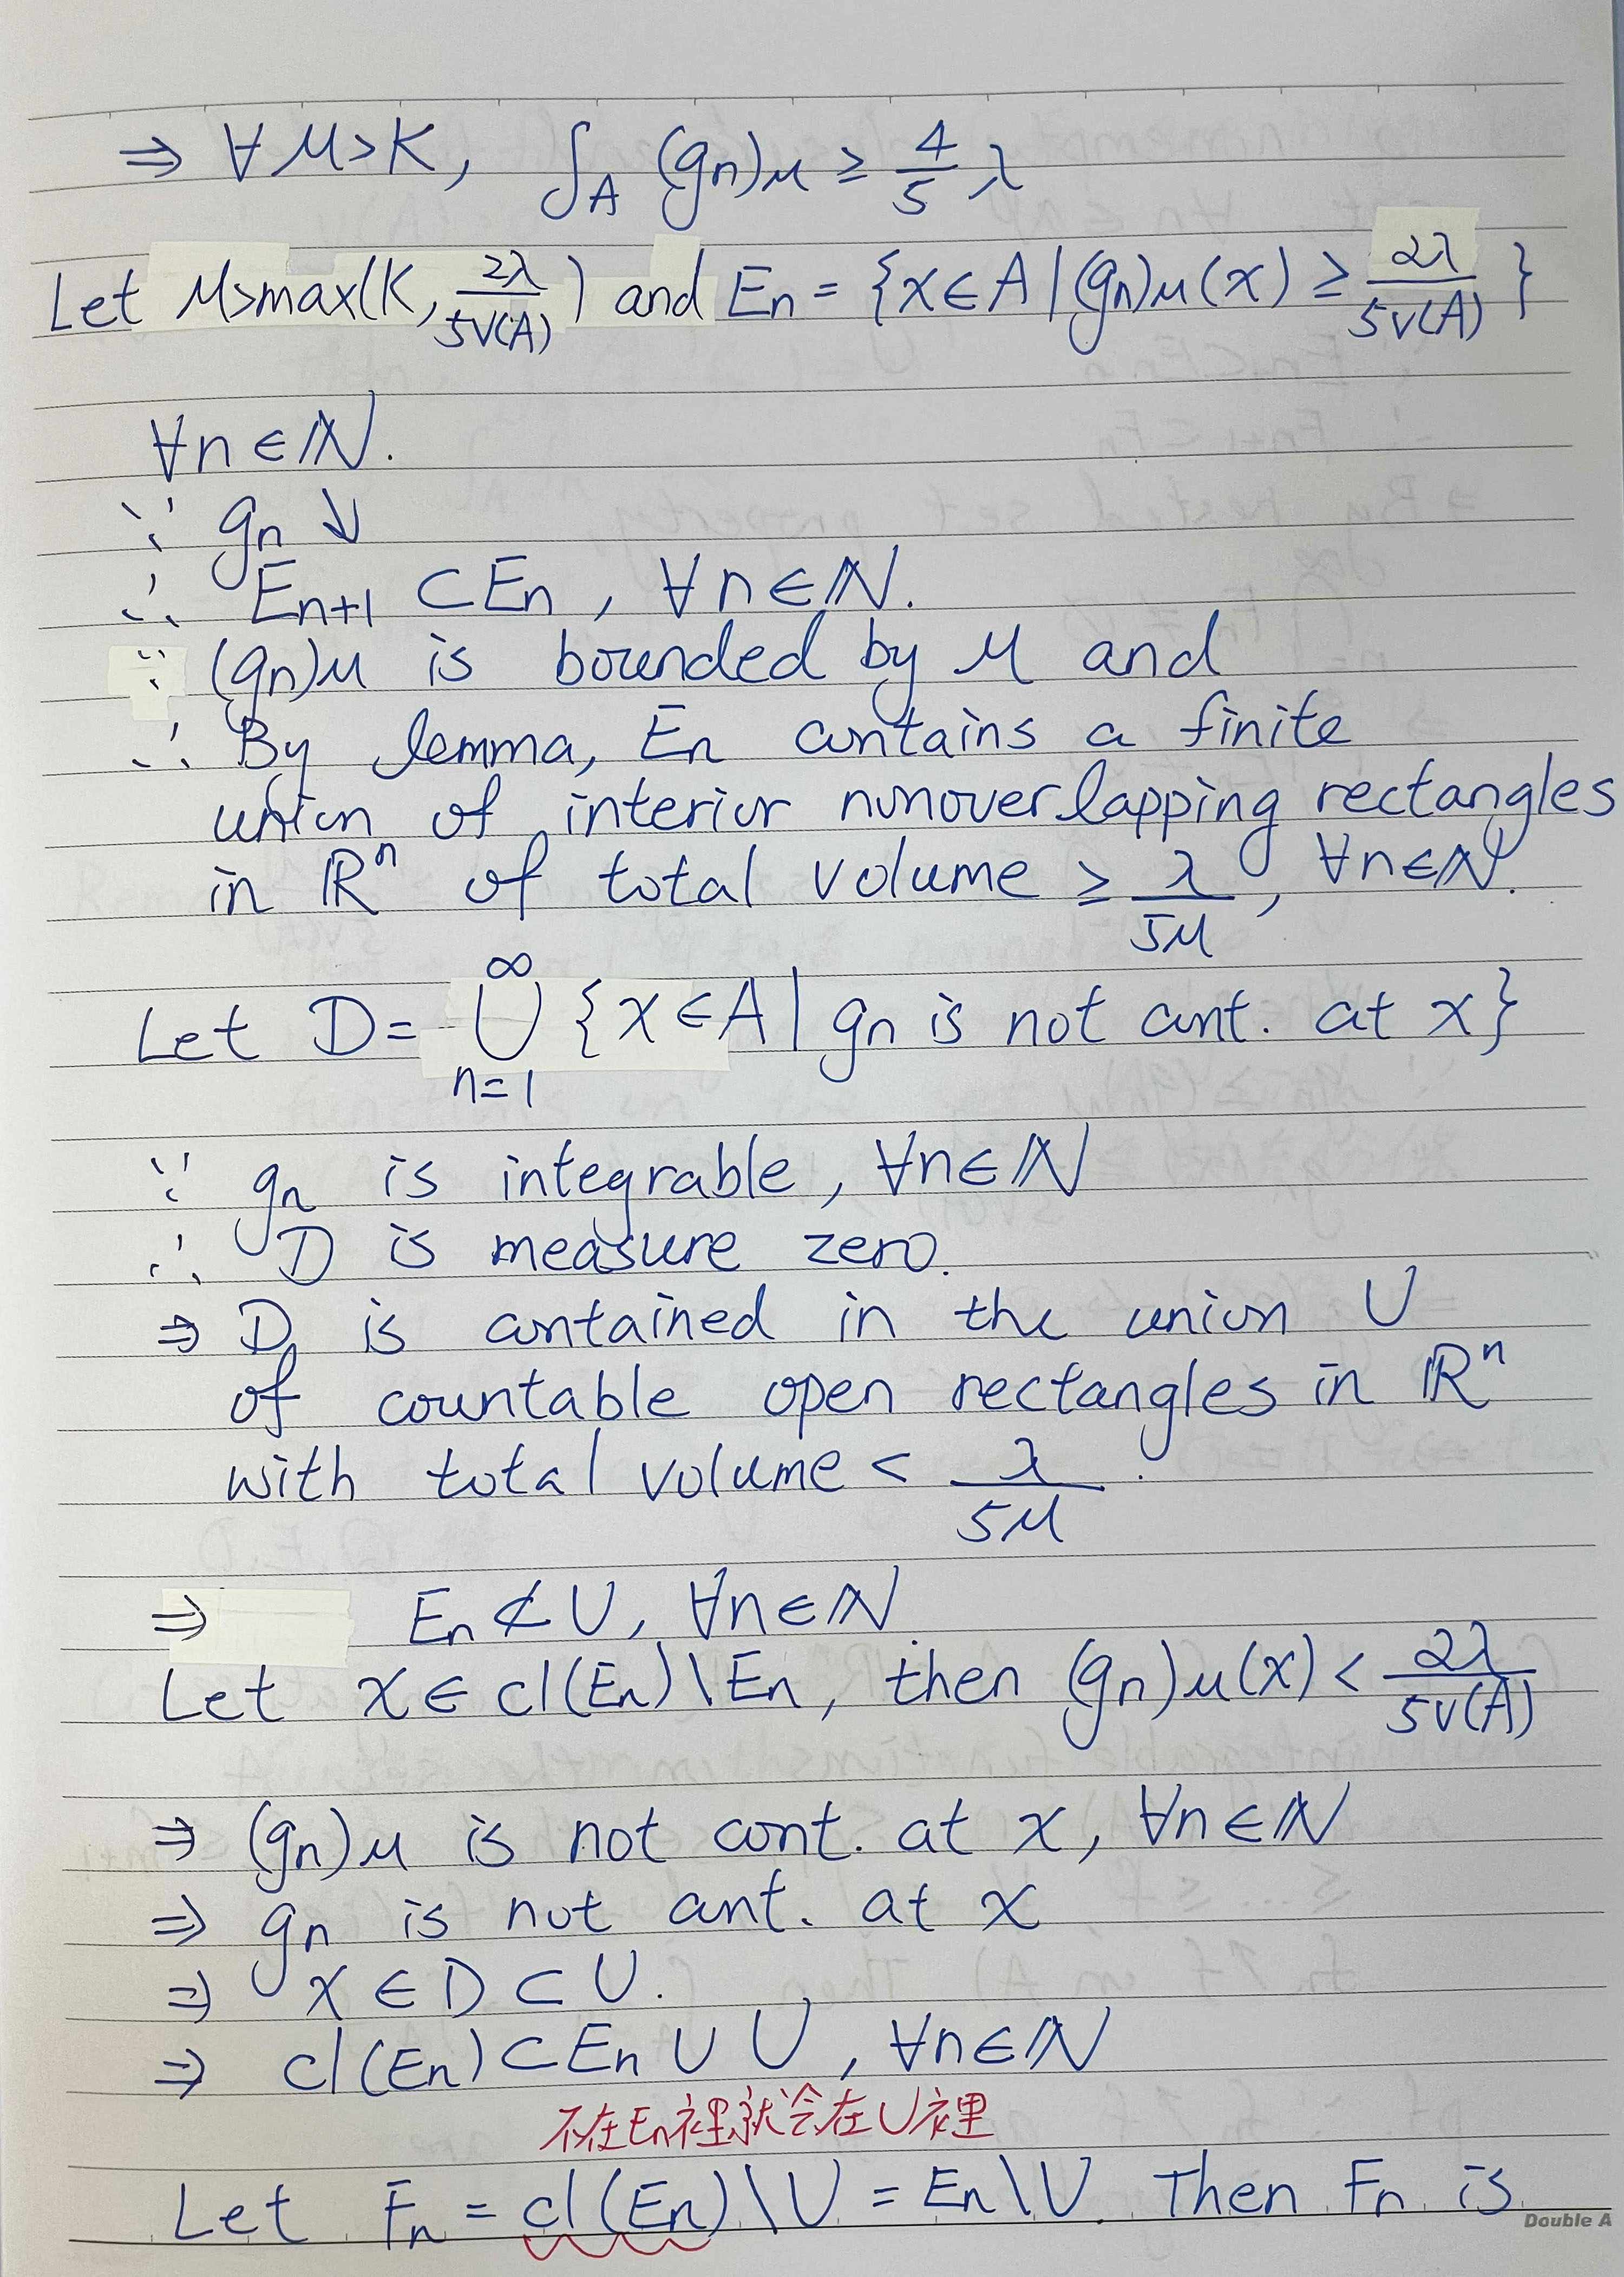 ⇒ ∀M>K, ∫_A (gn)_M ≥ 4/5 λ
Let M>max(K, 2λ/5V(A)) and En = {x∈A | (gn)_M(x) ≥ 2λ/5V(A)}
∀n∈ℕ.
∵ gn ↓
∴ En+1 ⊂ En, ∀n∈ℕ.
∵ (gn)_M is bounded by M and
∴ By lemma, En contains a finite
union of interior nonoverlapping rectangles
in ℝⁿ of total volume ≥ λ/5M, ∀n∈ℕ.
Let D = ∞⋃n=1 {x∈A | gn is not cont. at x}
∵ gn is integrable, ∀n∈ℕ
∴ D is measure zero.
⇒ D is contained in the union U
of countable open rectangles in ℝⁿ
with total volume < λ/5M.
⇒ En ⊄ U, ∀n∈ℕ.
Let x∈cl(En)\En, then (gn)_M(x) < 2λ/5V(A)
⇒ (gn)_M is not cont. at x, ∀n∈ℕ
⇒ gn is not cont. at x
⇒ x∈D⊂U.
⇒ cl(En)⊂En∪U, ∀n∈ℕ
不在En裡就會在U裡
Let Fn = cl(En)\U = En\U. Then Fn is
Double A